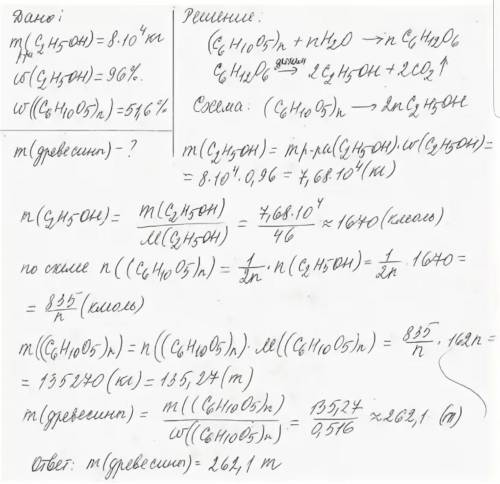 Дано:
m р-ра(C2H5OH)=8·10⁴кг
w(C2H5OH)=96%.
w((C6H10O5)n)=51,6%
m(древесины)-?
Решение:
(C6H10O5)n + nH2O → nC6H12O6
C6H12O6 дрожжи→ 2C2H5OH + 2CO2↑
Схема: (C6H10O5)n → 2nC2H5OH
m(C2H5OH) = mр-ра(C2H5OH)·w(C2H5OH)=
= 8·10⁴·0,96 = 7,68·10⁴(кг)
n(C2H5OH) = m(C2H5OH)/M(C2H5OH) = 7,68·10⁴/46 ≈ 1670 (кмоль)
по схеме n((C6H10O5)n) = 1/2n · n(C2H5OH) = 1/2n · 1670 =
= 835/n (кмоль)
m((C6H10O5)n) = n((C6H10O5)n)·M((C6H10O5)n) = 835/n · 162n =
= 135270 (кг) = 135,27(т)
m(древесины) = m((C6H10O5)n)/w((C6H10O5)n) = 135,27/0,516 ≈ 262,1 (т)
Ответ: m(древесины) = 262,1 т